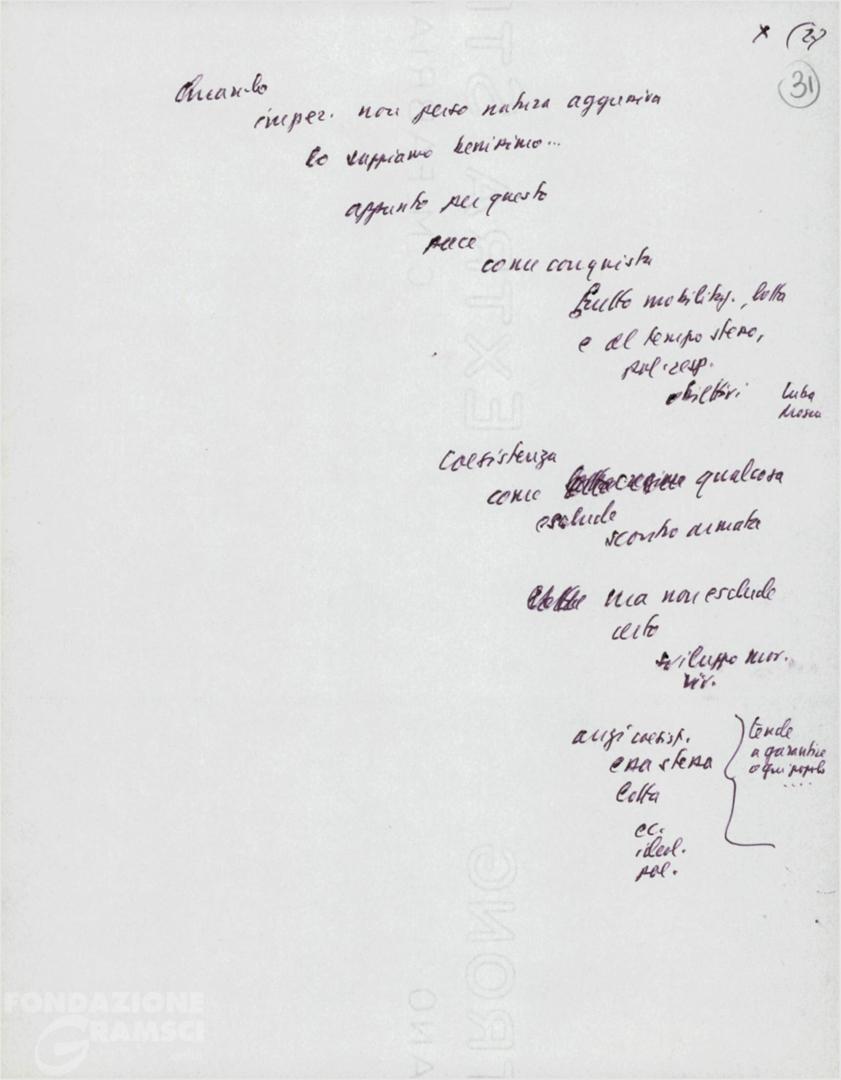 x (2)
31
imper. non perso natura aggressiva
lo sappiamo benissimo...
appunto per questo
pace
come conquista
frutto mobilitaz., lotta
e al tempo stesso,
pol. resp.
obiettivi
Cuba
Mosca
Coesistenza
come qualcosa
esclude
scontro armato
ma non esclude
certo
sviluppo mov.
riv.
anzi coesist.
essa stessa
lotta
ec.
ideol.
pol.
tende
a garantire
ogni popolo
....
EXTRA STRONG
FONDAZIONE
GRAMSCI